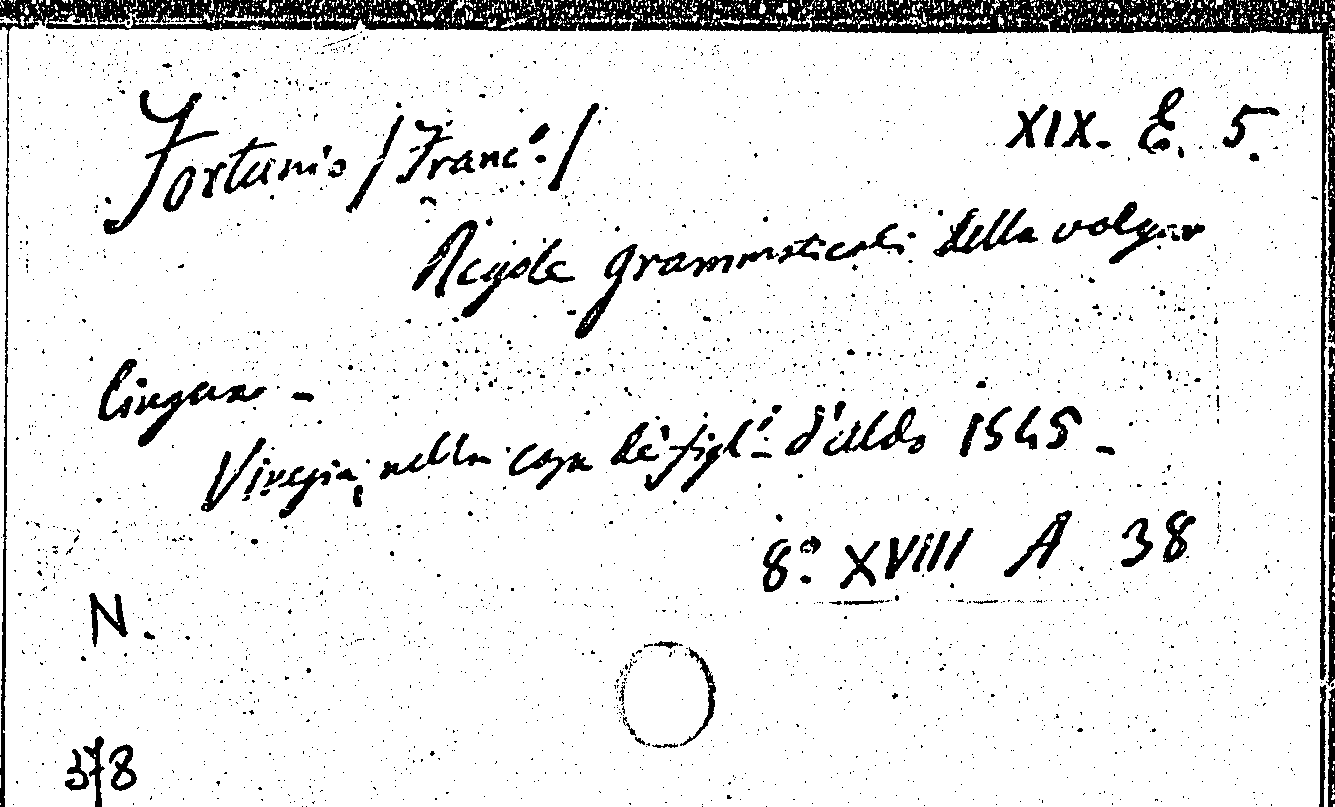 Fortunio /Franc.º/ XIX. E. 5.
Regole grammaticali della volgar
lingua –
Vinegia, nella casa de' figl.i d'Aldo 1545 –
8.º XVIII A 38
N.
378